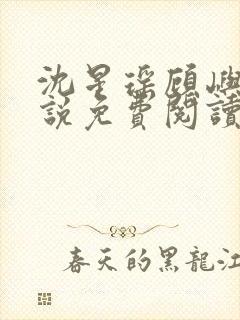 沈星深顧嶼
說免費閱讀
春天的黑龍江